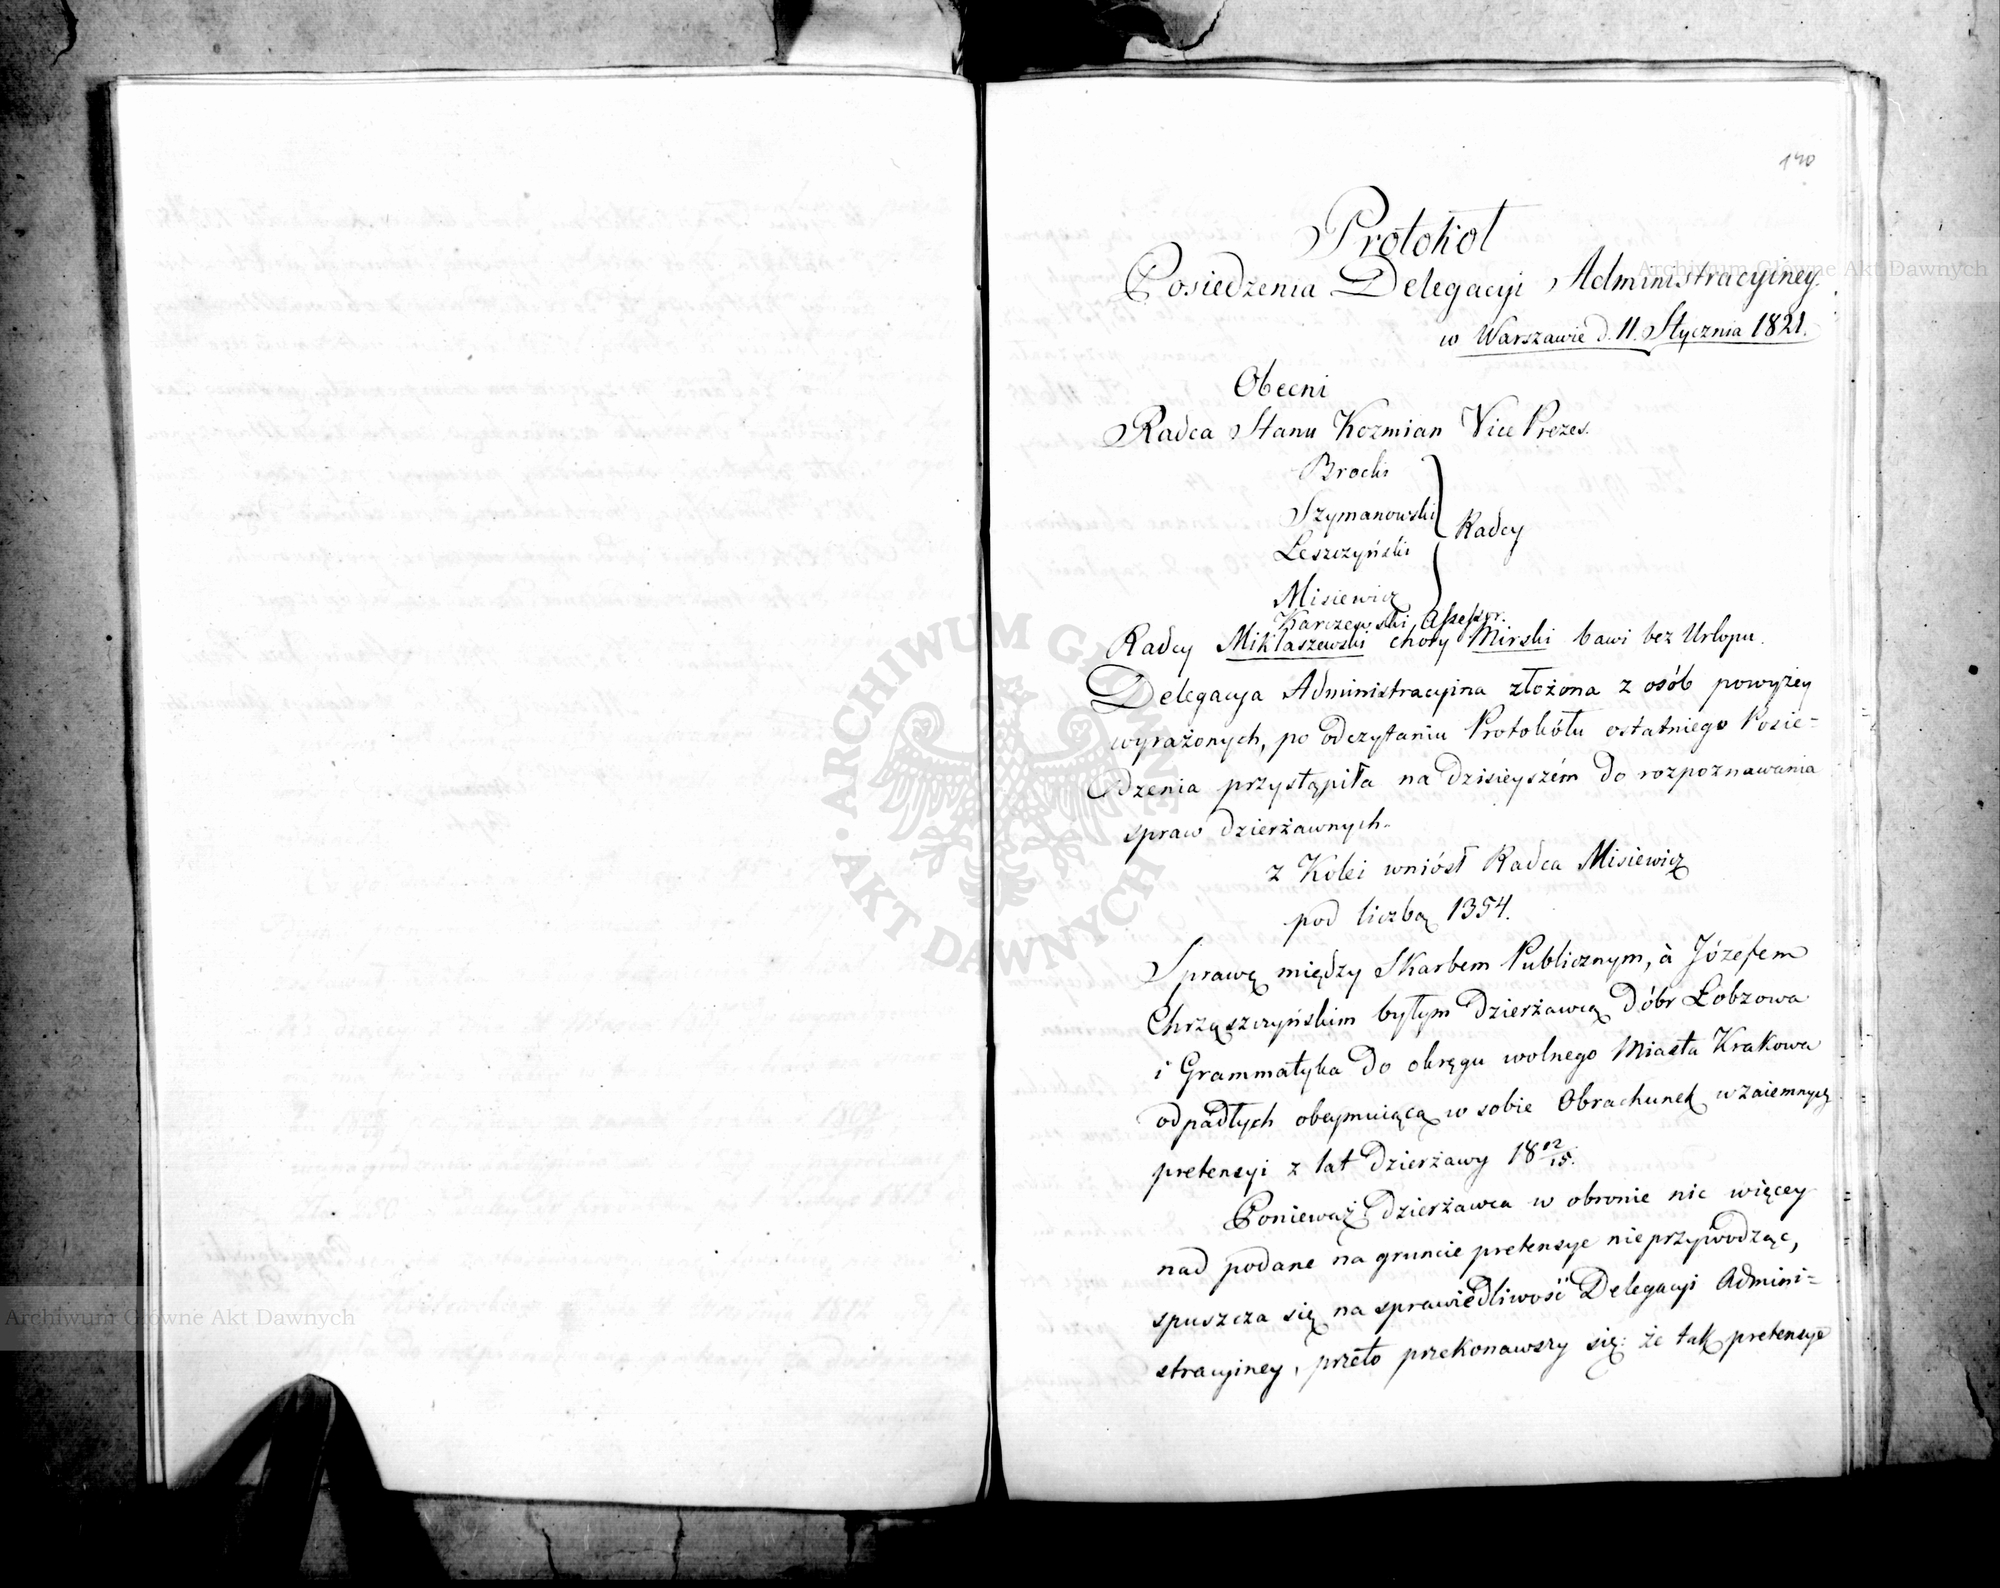 190
Protokół
Posiedzenia Delegacyi Administracyiney
w Warszawie d. 11. Stycznia 1821.
Obecni
Radca Stanu Kozmian Vice Prezes.
Brocki
Szymanowski
Leszczyński
Radcy
Misiewicz
Karczewski Assessor.
Radcy Miklaszewski chory Mirski bawi bez Urlopu.
Delegacya Administracyina złożona z osób powyżey
wyrażonych, po odczytaniu Protokółu ostatniego Posie=
dzenia przystąpiła na dzisieyszém do rozpoznawania
spraw dzierżawnych.
z Kolei wniósł Radca Misiewicz
pod liczbą 1354.
Sprawę między Skarbem Publicznym, à Józefem
Chrząszczyńskim byłym Dzierżawcą Dóbr Łobzowa
i Grammatyka do okręgu wolnego Miasta Krakowa
odpadłych obeymuiącą w sobie Obrachunek wzaiemnych
pretensyi z lat dzierżawy 18 12/15.
Ponieważ Dzierżawca w obronie nic więcey
nad podane na gruncie pretensye nieprzywodząc,
spuszcza się na sprawiedliwość Delegacyi Admini=
stracyiney, przeto przekonawszy się: że tak pretensye
Archiwum Główne Akt Dawnych
Archiwum Główne Akt Dawnych
ARCHIWUM GŁÓWNE AKT DAWNYCH